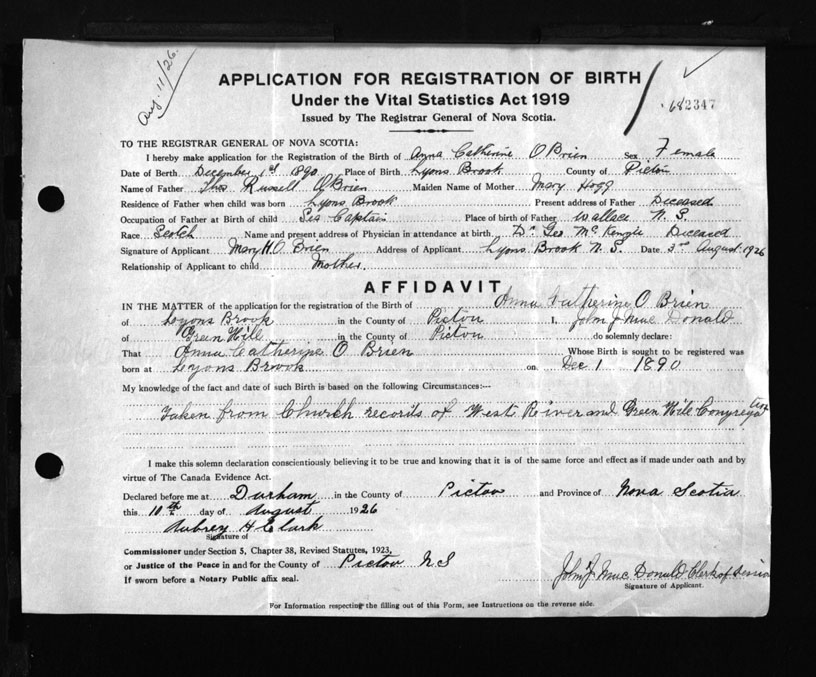 Aug. 11/26.
APPLICATION FOR REGISTRATION OF BIRTH
Under the Vital Statistics Act 1919
Issued by The Registrar General of Nova Scotia.
682347
TO THE REGISTRAR GENERAL OF NOVA SCOTIA:
I hereby make application for the Registration of the Birth of Anna Catherine O Brien Sex Female
Date of Birth December 1st 1890 Place of Birth Lyons Brook County of Pictou
Name of Father Thos Russell O'Brien Maiden Name of Mother Mary Hogg
Residence of Father when child was born Lyons Brook Present address of Father Deceased
Occupation of Father at Birth of child Captain Place of birth of Father Wallace N. S.
Race Scotch Name and present address of Physician in attendance at birth Dr. Geo Mc Kenzie Deceased
Signature of Applicant Mary H. O Brien Address of Applicant Lyons Brook N. S. Date 3rd August 1926
Relationship of Applicant to child Mother.
AFFIDAVIT
IN THE MATTER of the application for the registration of the Birth of Anna Catherine O Brien
of Lyons Brook in the County of Pictou I, John J Mac Donald
of Green Hill in the County of Pictou do solemnly declare:
That Anna Catherine O Brien Whose Birth is sought to be registered was
born at Lyons Brook on Dec 1 1890
My knowledge of the fact and date of such Birth is based on the following Circumstances:—
Taken from Church records of West River and Green Hill Congregation
I make this solemn declaration conscientiously believing it to be true and knowing that it is of the same force and effect as if made under oath and by
virtue of The Canada Evidence Act.
Declared before me at Durham in the County of Pictou and Province of Nova Scotia
this 10th day of August 1926
Aubrey H Clark
Signature of
Commissioner under Section 5, Chapter 38, Revised Statutes, 1923,
or Justice of the Peace in and for the County of Pictou N S
If sworn before a Notary Public affix seal.
John J. Mac Donald Clerk of Session
Signature of Applicant.
For Information respecting the filling out of this Form, see Instructions on the reverse side.